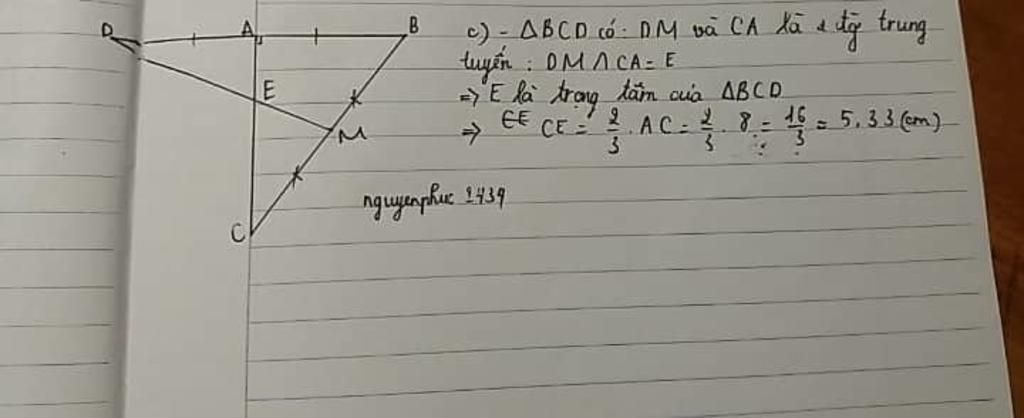 D A B
E
M
C
c) - ΔBCD có: DM và CA là 2 đg trung
tuyến: DM ∩ CA = E
=> E là trọng tâm của ΔBCD
=> CE = 2/3 . AC = 2/3 . 8 = 16/3 = 5,33 (cm)
nguyenphuc 2439